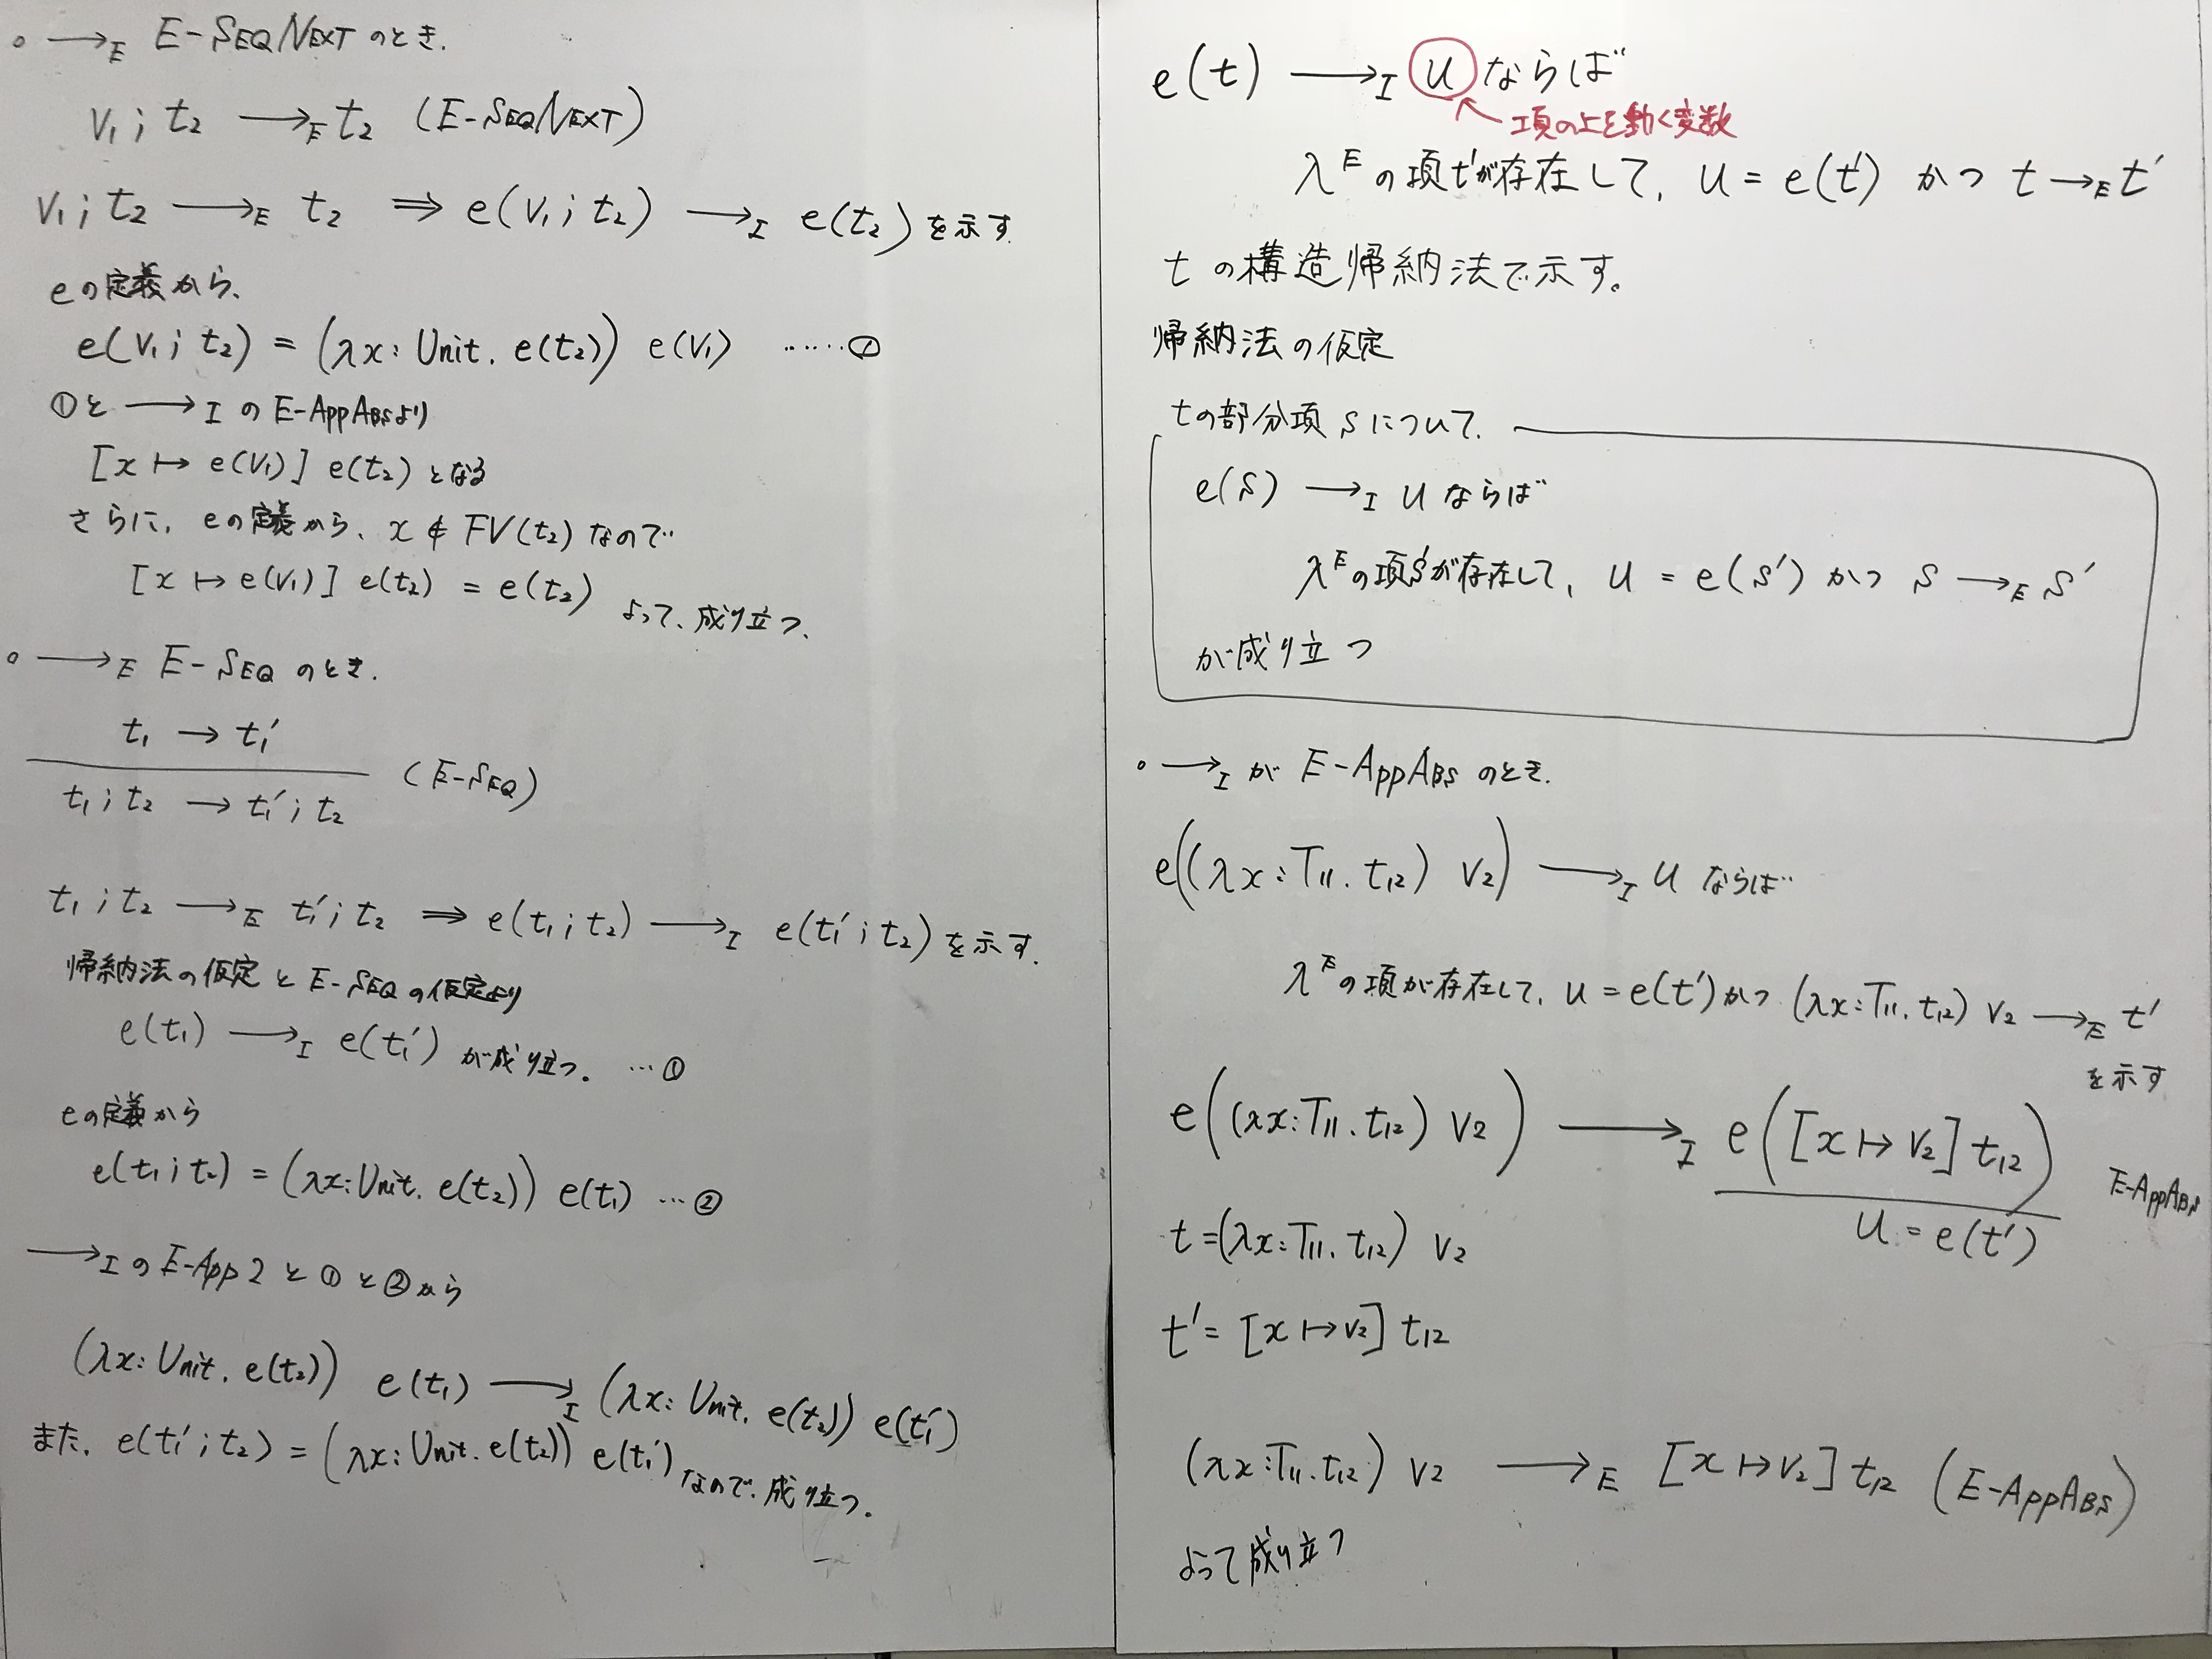 ○ ⟶E E-SEQNEXT のとき.
v₁; t₂ ⟶E t₂ (E-SEQNEXT)
v₁; t₂ ⟶E t₂ ⇒ e(v₁; t₂) ⟶I e(t₂) を示す.
eの定義から、
e(v₁; t₂) = (λx: Unit. e(t₂)) e(v₁) ……①
①と ⟶I の E-AppAbsより
[x ↦ e(v₁)] e(t₂) となる
さらに、eの定義から、x ∉ FV(t₂) なので
[x ↦ e(v₁)] e(t₂) = e(t₂) よって、成り立つ、
○ ⟶E E-SEQ のとき.
t₁ → t₁′
(E-SEQ)
t₁; t₂ → t₁′; t₂
t₁; t₂ ⟶E t₁′; t₂ ⇒ e(t₁; t₂) ⟶I e(t₁′; t₂) を示す.
帰納法の仮定と E-SEQの仮定より
e(t₁) ⟶I e(t₁′) が成り立つ。…①
eの定義から
e(t₁; t₂) = (λx: Unit. e(t₂)) e(t₁) …②
⟶I の E-App2 と ① と ② から
(λx: Unit. e(t₂)) e(t₁) ⟶I (λx: Unit. e(t₂)) e(t₁′)
また、e(t₁′; t₂) = (λx: Unit. e(t₂)) e(t₁′) なので、成り立つ。
e(t) ⟶I u ならば
項の上を動く変数
λᴱの項t′が存在して、u = e(t′) かつ t ⟶E t′
tの構造帰納法で示す。
帰納法の仮定
tの部分項 s について、
e(s) ⟶I u ならば
λᴱの項s′が存在して、u = e(s′) かつ s ⟶E s′
が成り立つ
○ ⟶I が E-AppAbs のとき.
e((λx: T₁₁. t₁₂) v₂) ⟶I u ならば
λᴱの項が存在して、u = e(t′) かつ (λx: T₁₁. t₁₂) v₂ ⟶E t′
を示す
e((λx: T₁₁. t₁₂) v₂) ⟶I e([x ↦ v₂] t₁₂)
E-AppAbs
u = e(t′)
t = (λx: T₁₁. t₁₂) v₂
t′ = [x ↦ v₂] t₁₂
(λx: T₁₁. t₁₂) v₂ ⟶E [x ↦ v₂] t₁₂ (E-AppAbs)
よって成り立つ